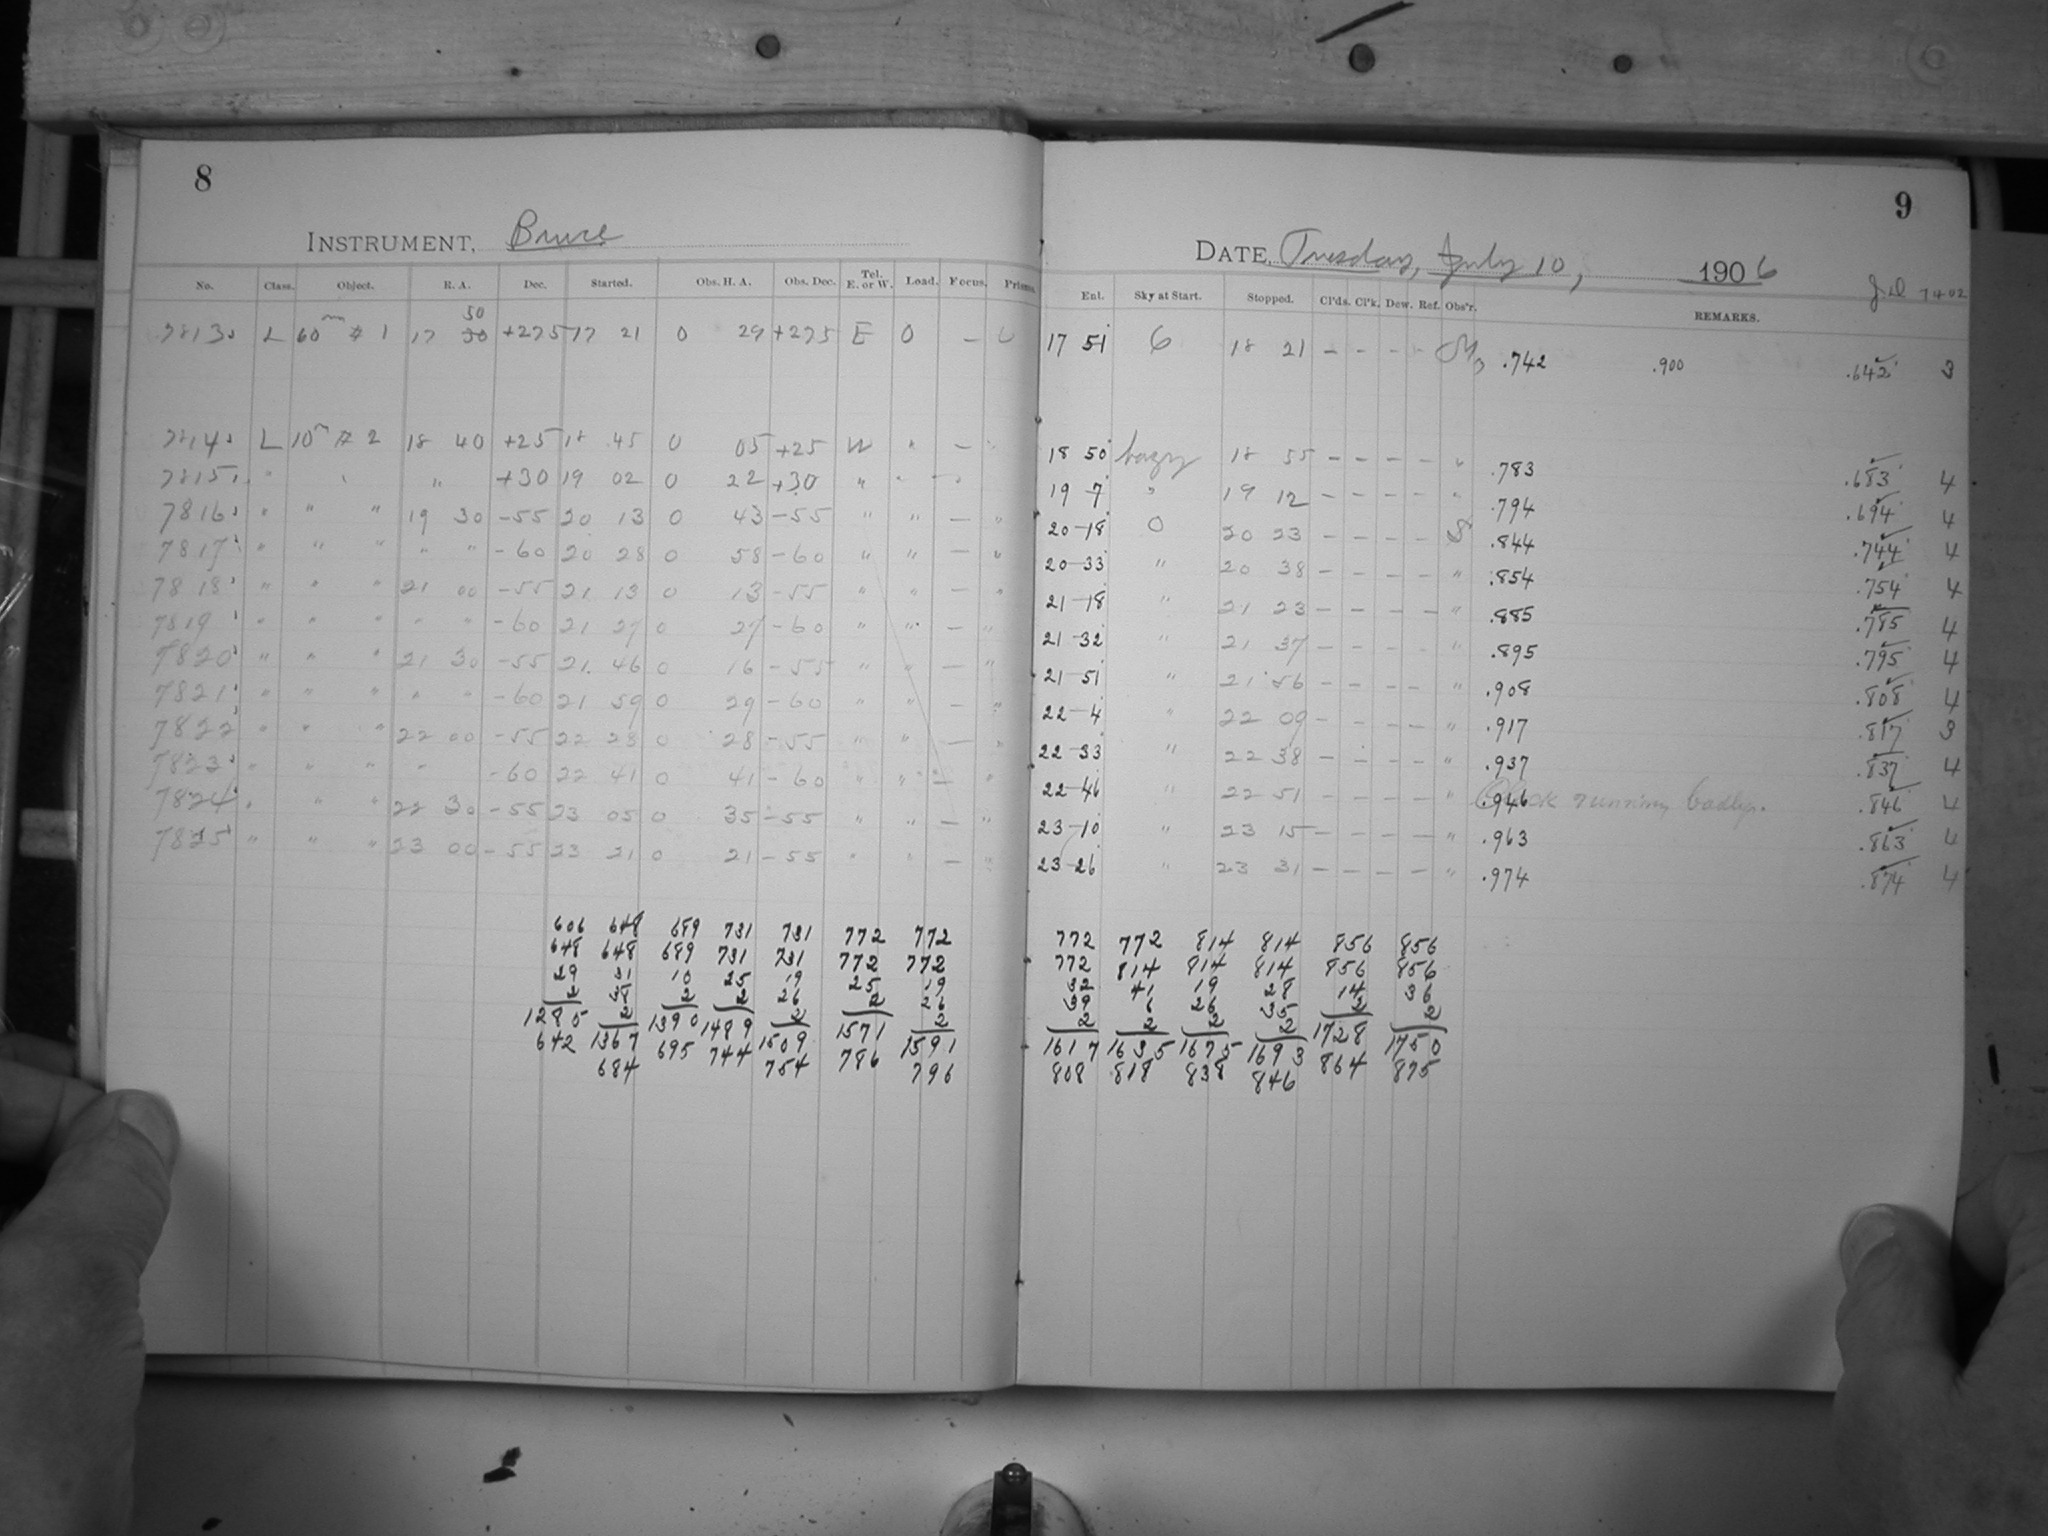 8
INSTRUMENT, Bruce
No. Class. Object. R. A. Dec. Started. Obs. H. A. Obs. Dec. Tel. E. or W. Load. Focus. Prisms.
50
7813 L 60m # 1 17 30 +275 17 21 0 29 +275 E 0 –
7814 L 10m # 2 18 40 +25 18 45 0 05 +25 W " –
7815 " " +30 19 02 0 22 +30 " " –
7816 " " " 19 30 -55 20 13 0 43 -55 " " – "
7817 " " " " " -60 20 28 0 58 -60 " " – "
7818 " " " 21 00 -55 21 13 0 13 -55 " " – "
7819 " " " " " -60 21 27 0 27 -60 " " – "
7820 " " " 21 30 -55 21 46 0 16 -55 " " – "
7821 " " " " " -60 21 59 0 29 -60 " " – "
7822 " " " 22 00 -55 22 28 0 28 -55 " " – "
7823 " " " " -60 22 41 0 41 -60 " " – "
7824 " " " 22 30 -55 23 05 0 35 -55 " " – "
7825 " " " 23 00 -55 23 21 0 21 -55 " " – "
606 648 689 731 731 772 772
648 648 689 731 731 772 772
29 31 10 25 19 25 19
2 38 2 2 26 2 26
1285 2 1390 1489 2 1571 2
642 1367 695 744 1509 786 1591
684 754 796
9
DATE, Tuesday, July 10, 1906
J.D. 7402
Enl. Sky at Start. Stopped. Cl'ds. Cl'k. Dew. Ref. Obs'r. REMARKS.
17 51 6 18 21 – – – – .742 .900 .642 3
18 50 hazy 18 55 – – – – " .783 .683 4
19 7 " 19 12 – – – – " .794 .694 4
20-18 0 20 23 – – – – .844 .744 4
20-33 " 20 38 – – – – " .854 .754 4
21-18 " 21 23 – – – – " .885 .785 4
21-32 " 21 37 – – – – " .895 .795 4
21-51 " 21 56 – – – – " .908 .808 4
22-4 " 22 09 – – – – " .917 .817 3
22-33 " 22 38 – – – – " .937 .837 4
22-46 " 22 51 – – – – " .946 Clock running badly. .846 4
23-10 " 23 15 – – – – " .963 .863 4
23-26 " 23 31 – – – – " .974 .874 4
772 772 814 814 856 856
772 814 814 814 856 856
32 41 19 28 14 36
39 6 26 35 2 2
2 2 2 2 1728 1750
1617 1635 1675 1693 864 875
808 818 838 846